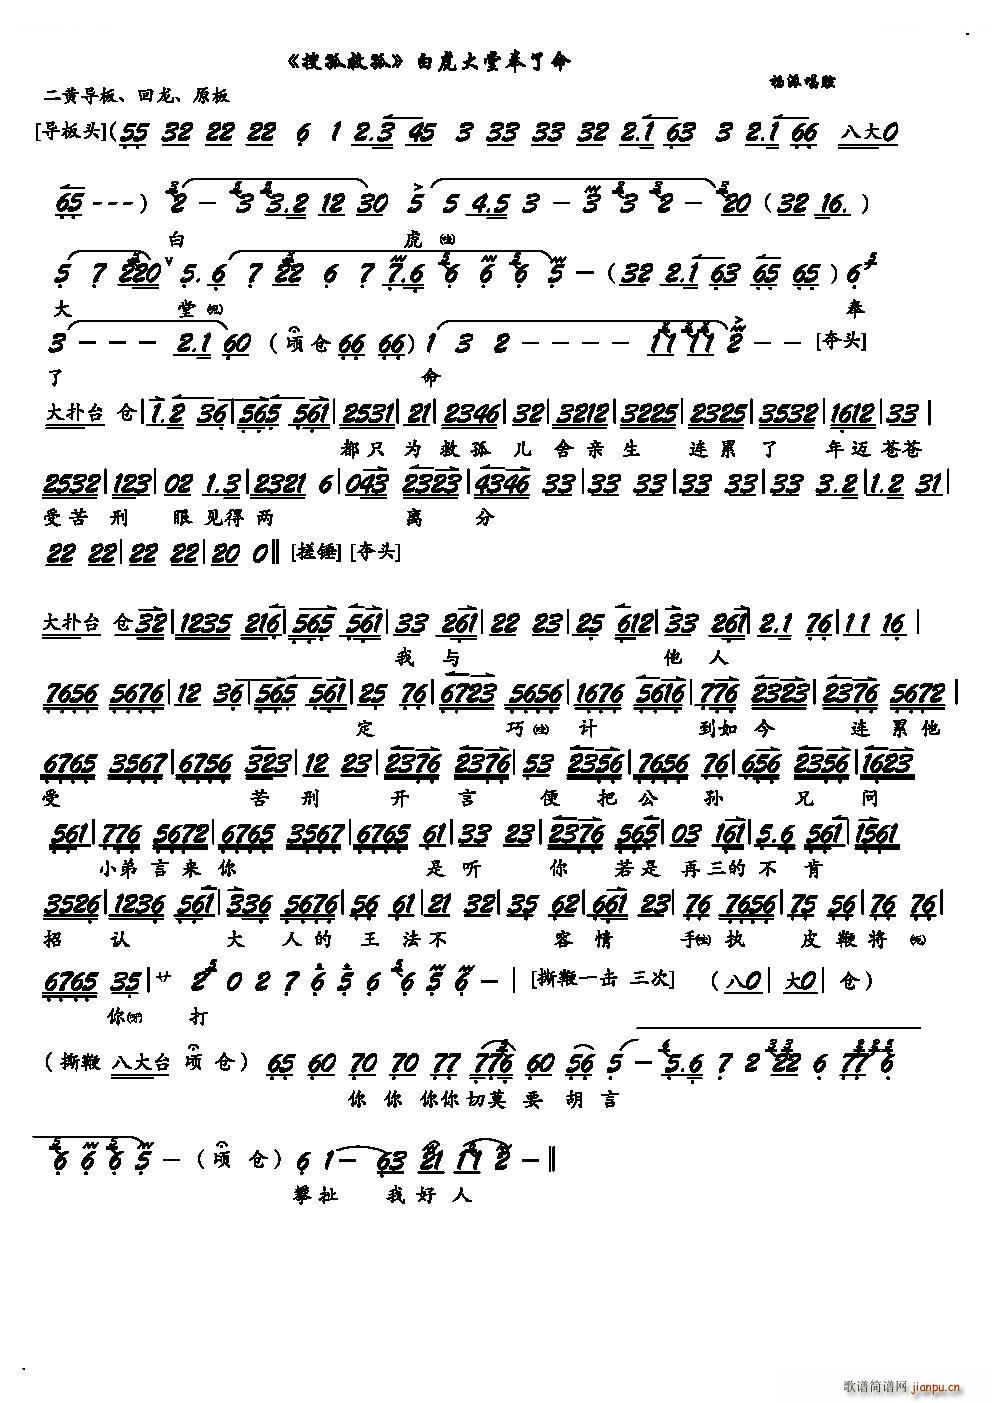 《搜孤救孤》白虎大堂奉了命
杨派唱腔
二黄导板、回龙、原板
[导板头](55 32 22 22 6 1 2.3 45 3 33 33 32 2.1 63 3 2.1 66 八大0
65 ---) 2 - 3 3.2 12 30 5 5 4.5 3 - 3 3 2 - 20 (32 16.)
白 虎
5 7 220 5. 6 7 22 6 7 7.6 6 6 6 5 - (32 2.1 63 65 65) 6
大 堂 奉
3 - - - 2.1 60 (顷仓 66 66) 1 3 2 - - - - 11 11 2 - - [夺头]
了 命
大扑台 仓|1.2 36|565 561|2531|21|2346|32|3212|3225|2325|3532|1612|33|
都只为救孤儿舍亲生 连累了 年迈苍苍
2532|123|02 1.3|2321 6|043 2323|4346 33|33 33|33 33|33 3.2|1.2 31|
受苦刑 眼见得两 离 分
22 22|22 22|20 0‖[搓锤] [夺头]
大扑台 仓 32|1235 216|565 561|33 231|22 23|25 612|33 261|2.1 76|11 16|
我 与 他 人
7656 5676|12 36|565 561|25 76|6723 5656|1676 5616|776 2323|2376 5672|
定 巧 计 到如今 连累他
6765 3567|6756 323|12 23|2376 2376|53 2356|7656 76|656 2356|1623
受 苦 刑 开 言 便 把 公 孙 兄 问
561|776 5672|6765 3567|6765 61|33 23|2376 565|03 161|5.6 561|1561
小弟言来你 是听 你 若是再三的不肯
3526|1236 561|336 5676|56 61|21 32|35 62|661 23|76 7656|75 56|76 76|
招 认 大 人 的 王 法 不 容 情 手 执 皮 鞭 将
6765 35|サ 2 0 2 7 6 5 6 6 5 6 - |[撕鞭一击 三次] (八0|大0|仓)
你 打
(撕鞭 八大台 顷 仓) 65 60 70 70 77 776 60 56 5 - 5.6 7 2 22 6 77 6
你 你 你你切莫要胡言
6 6 6 5 - (顷 仓) 6 1 - 63 21 11 2 -‖
攀扯 我好人
歌谱简谱网 jianpu.cn